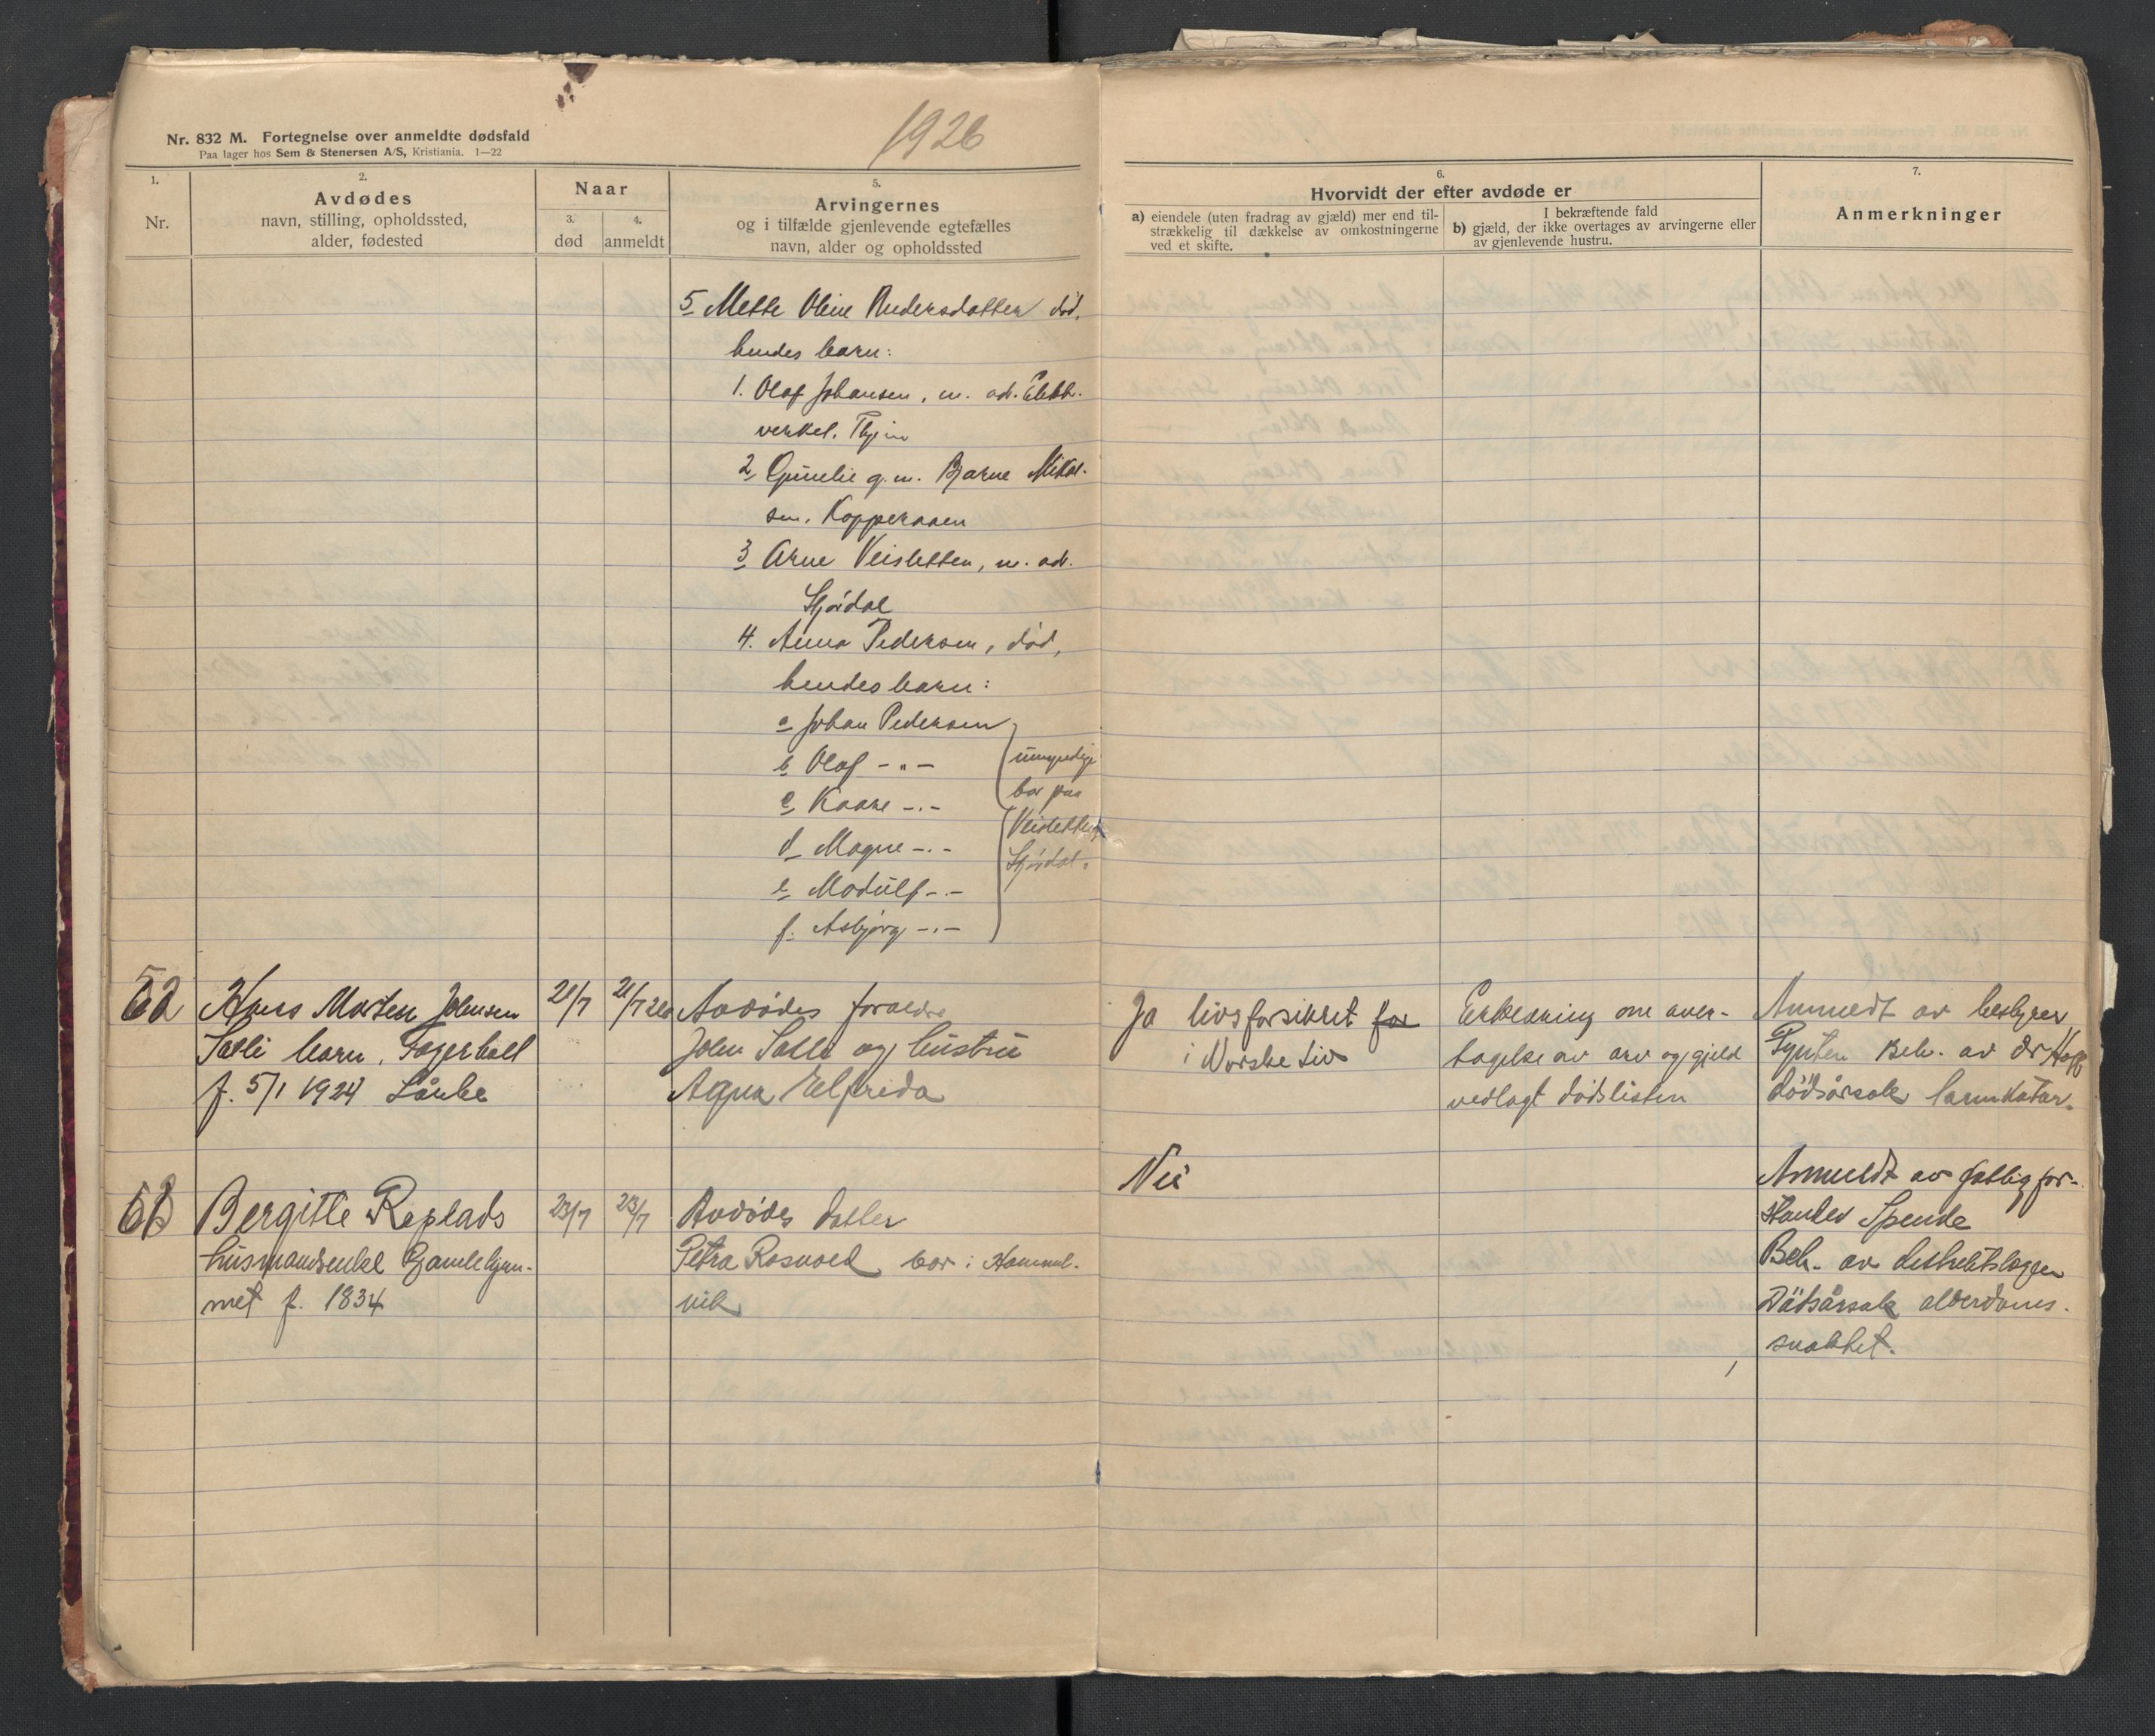 Nr. 832 M. Fortegnelse over anmeldte dødsfald
Paa lager hos Sem & Stenersen A/S, Kristiania. 1—22
1926
1.
Nr.
2.
Avdødes
navn, stilling, opholdssted,
alder, fødested
Naar
3.
død
4.
anmeldt
5.
Arvingernes
og i tilfælde gjenlevende egtefælles
navn, alder og opholdssted
6.
Hvorvidt der efter avdøde er
a) eiendele (uten fradrag av gjæld) mer end til-
strækkelig til dækkelse av omkostningerne
ved et skifte.
I bekræftende fald
b) gjæld, der ikke overtages av arvingerne eller
av gjenlevende hustru.
7.
Anmerkninger
5 Mette Oline Andersdatter død,
hendes barn:
1. Olaf Johansen, m. ad. Elektr.
verket.
2 Gunelie g. m. Bjarne Mikal-
sen. Kopperaaen
3 Arne Veisletten, m. ad.
Stjørdal
4. Anna Pedersen, død,
hendes barn:
a Johan Pedersen
b Olaf - " -
c Kaare - " -
d Magne - " -
e Modulf - " -
f. Asbjørg - " -
umyndige
bor paa
Veisletten
Stjørdal.
62
Hans Morten Johnsen
barn, Fagerholt
f. 5/1 1924 Lånke
21/7
21/7 26
Avdødes foraeldre
John og hustru
Agna Elfrida
Ja livsforsikret for
i Norske Liv
Erklæring om over-
tagelse av arv og gjeld
vedlagt dødslisten
Anmeldt av bestyrer
Beh. av dr Hoff
dödsårsak tarmkatar.
63
Bergitte Replads
husmandsenke Gamlehjem-
met f. 1834
23/7
23/7
Avdødes datter
Petra Rosvold bor i Hommel-
vik
Nei
Anmeldt av fattigfor-
stander Spende
Beh. av distriktslægen
Dödsårsak alderdoms-
svakhet.